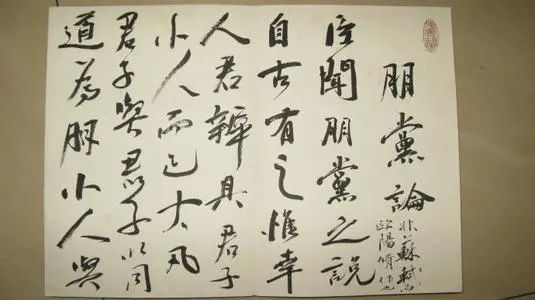 朋黨論
蘇軾
歐陽脩作也
臣聞朋黨之說
自古有之惟幸
人君辨其君子
小人而已大凡
君子與君子以同
道為朋小人與